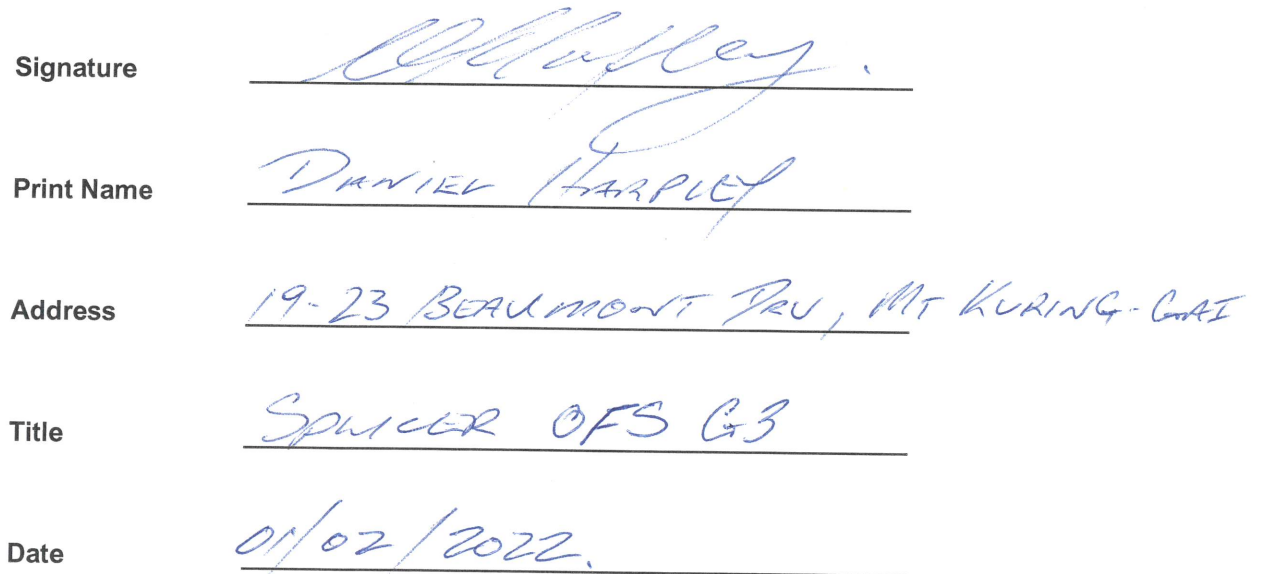 Signature
Print Name DANIEL HARPLEY
Address 19-23 BEAUMONT DRV, MT KURING-GAI
Title SPLICER OFS G3
Date 01/02/2022.